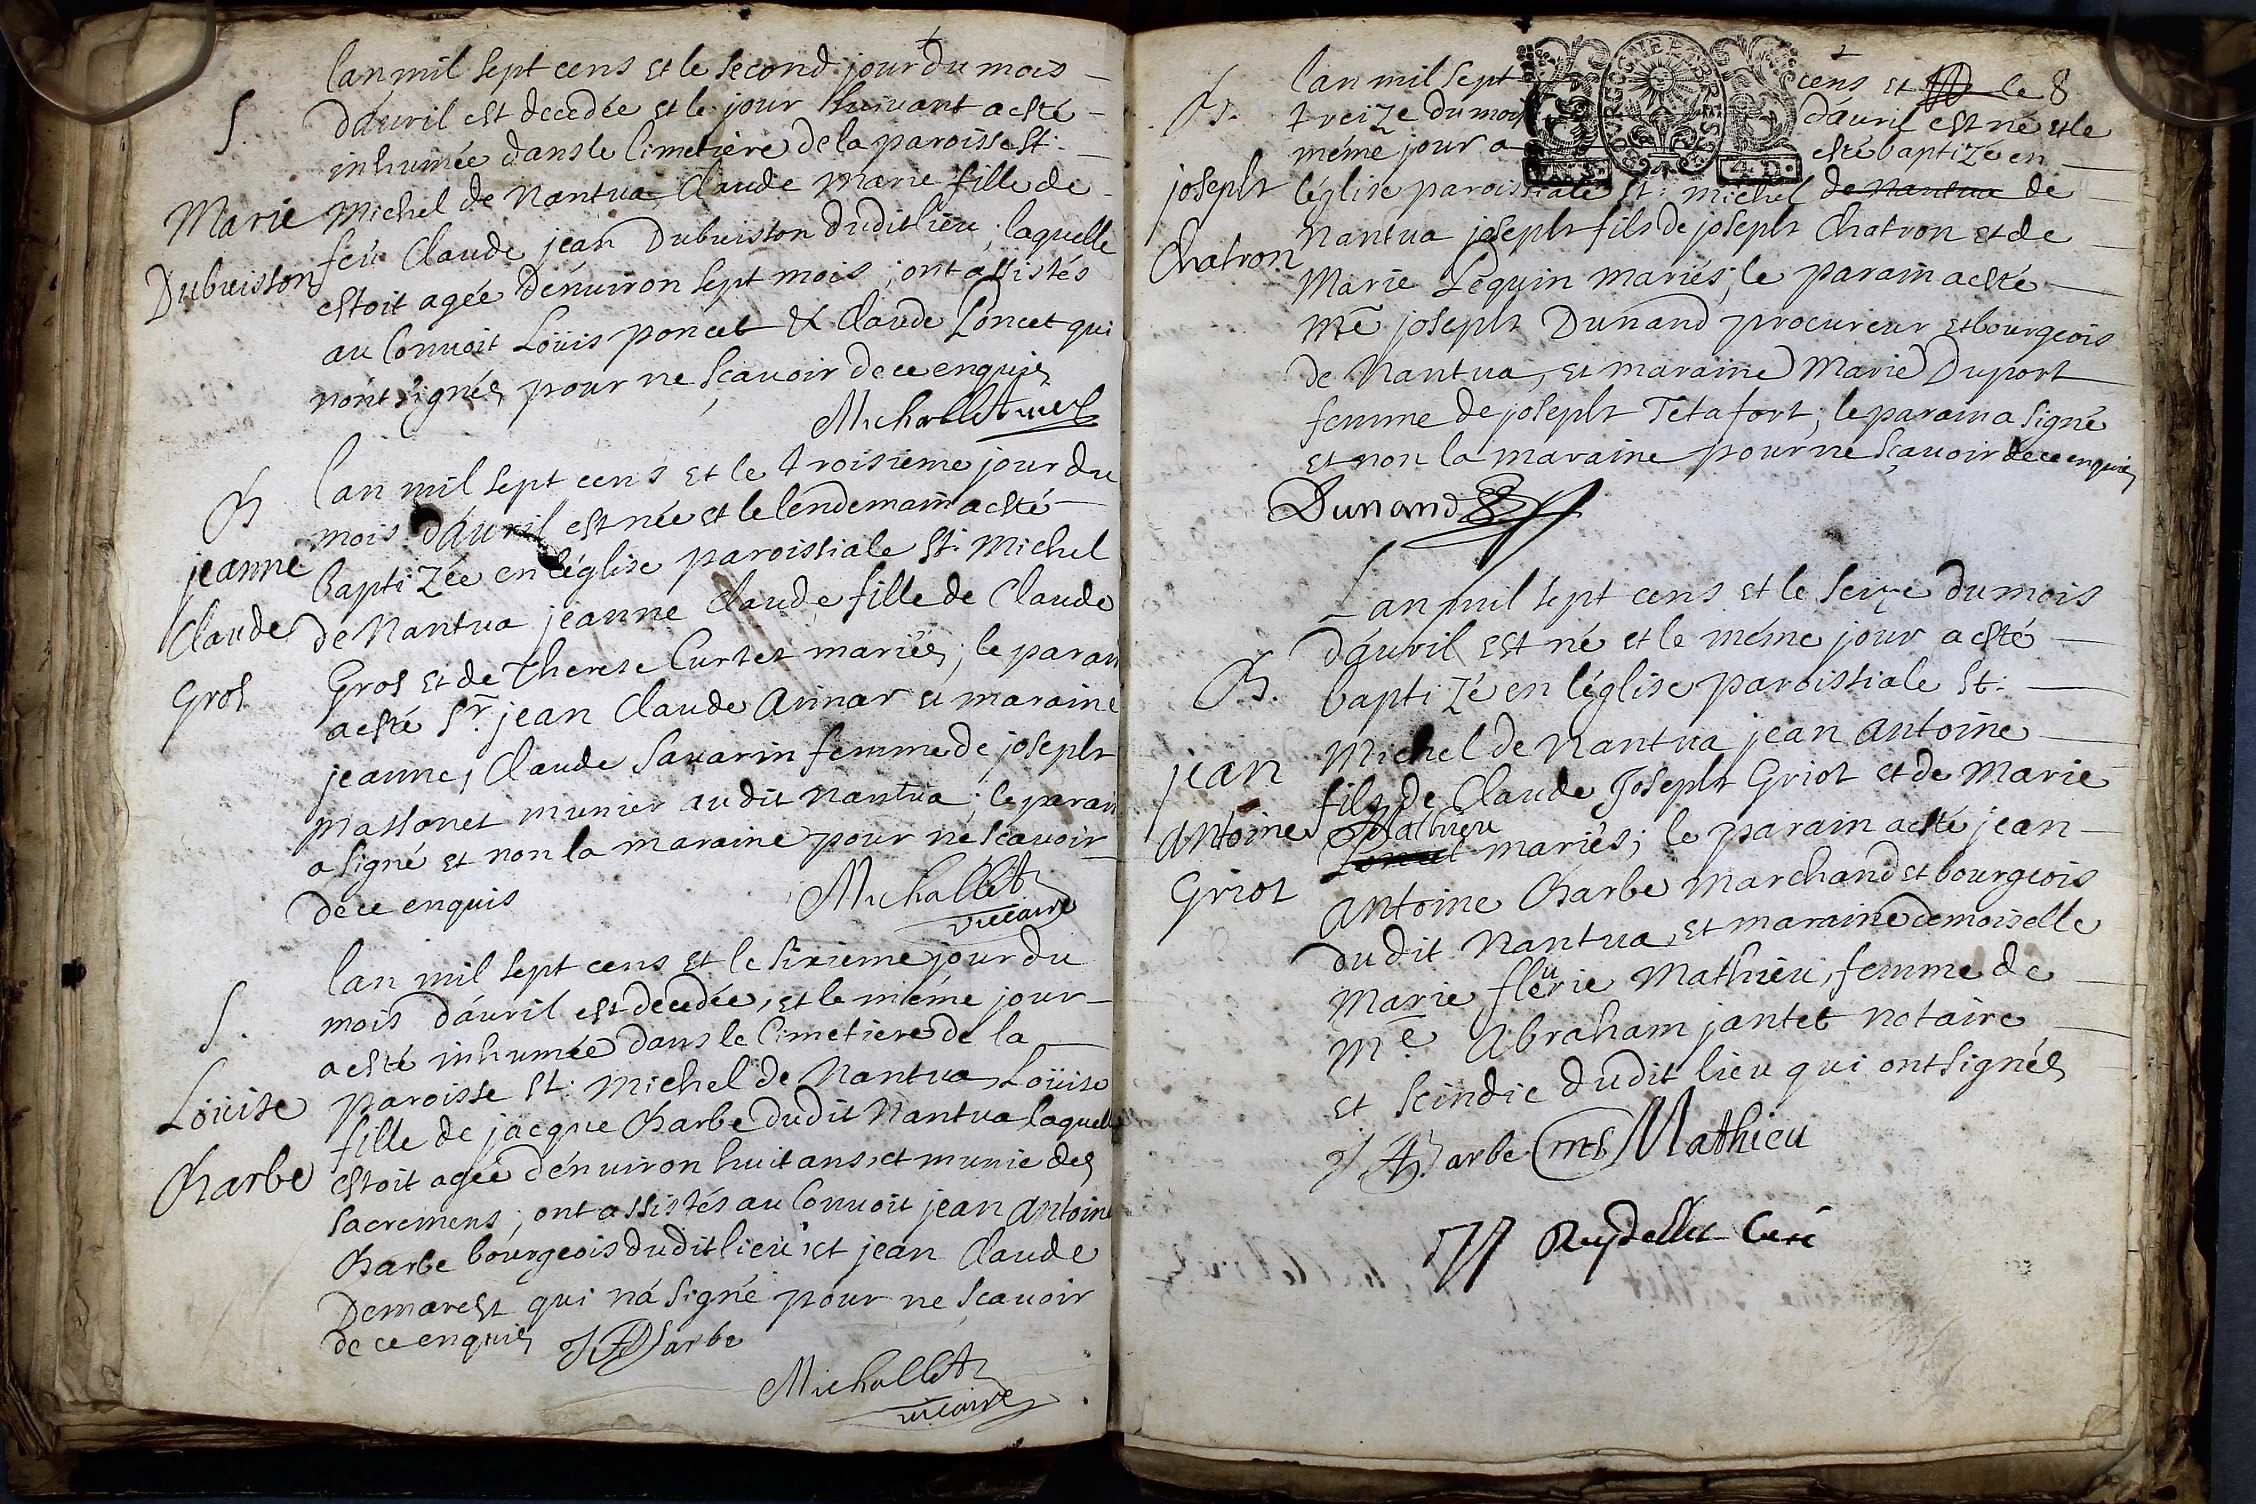 lan mil sept cens et le second jour du mois
S. dáuril est decedée et le jour suiuant a esté
inhumée dans le Cimetiere de la paroisse St.
Marie Michel de Nantua Claude Marie fille de
feu Claude jean Dubuisson dudit lieu, laquelle
Dubuisson estoit agée dénuiron sept mois, ont assistés
au Conuoit Loüis poncet & Claude Poncet qui
nont signés pour ne sçauoir de ce enquis
Michallet
lan mil sept cens et le troisieme jour du
B mois dáuril est née et le lendemain a esté
jeanne baptizée en léglise paroissiale St. Michel
Claude de Nantua jeanne Claude fille de Claude
Gros Gros et de Therese Curtet mariés, le parain
a esté Sr. jean Claude Aimar et maraine
jeanne, Claude Sauarin femme de joseph
Massonet munier audit Nantua; le parain
a signé et non la maraine pour ne scauoir
de ce enquis Michallet
vicaire
lan mil sept cens et le sixieme jour du
S. mois dáuril est decedée, et le méme jour
a esté inhumée dans le Cimetiere de la
Loüise paroisse St. Michel de Nantua, Loüise
fille de jacque Barbe dudit Nantua laquelle
Barbe estoit agée dénuiron huit ans, et munie des
sacremens; ont assistés au Conuoit jean Antoine
Barbe bourgeois dudit lieu, et jean Claude
Demarest qui ná signé pour ne sçauoir
de ce enquis JA Barbe
Michallet
vicaire
lan mil sept cens et le 8
B. treize du mois dáuril est né et le
méme jour a esté baptizé en
joseph léglise paroissiale St. Michel de Nantua de
Nantua joseph fils de joseph Chatron et de
Chatron Marie Pequin mariés; le parain a esté
Me joseph Dunand procureur et bourgeois
de Nantua, et maraine Marie Duport
femme de joseph Tetafort; le parain a signé
et non la maraine pour ne sçauoir de ce enquis
Dunand
Lan mil sept cens et le seize du mois
dáuril est né et le méme jour a esté
B. baptizé en léglise paroissiale St.
jean Michel de Nantua jean Antoine
fils de Claude Joseph Griot et de Marie
Antoine Mathieu mariés; le parain a esté jean
Griot Antoine Barbe marchand et bourgeois
dudit Nantua, et maraine demoiselle
Marie fleurie Mathieu, femme de
Me. Abraham jantet notaire
et scindic dudit lieu qui ont signés
JA Barbe Mathieu
Curé
BOURGOGNE BRESSE
4. D.